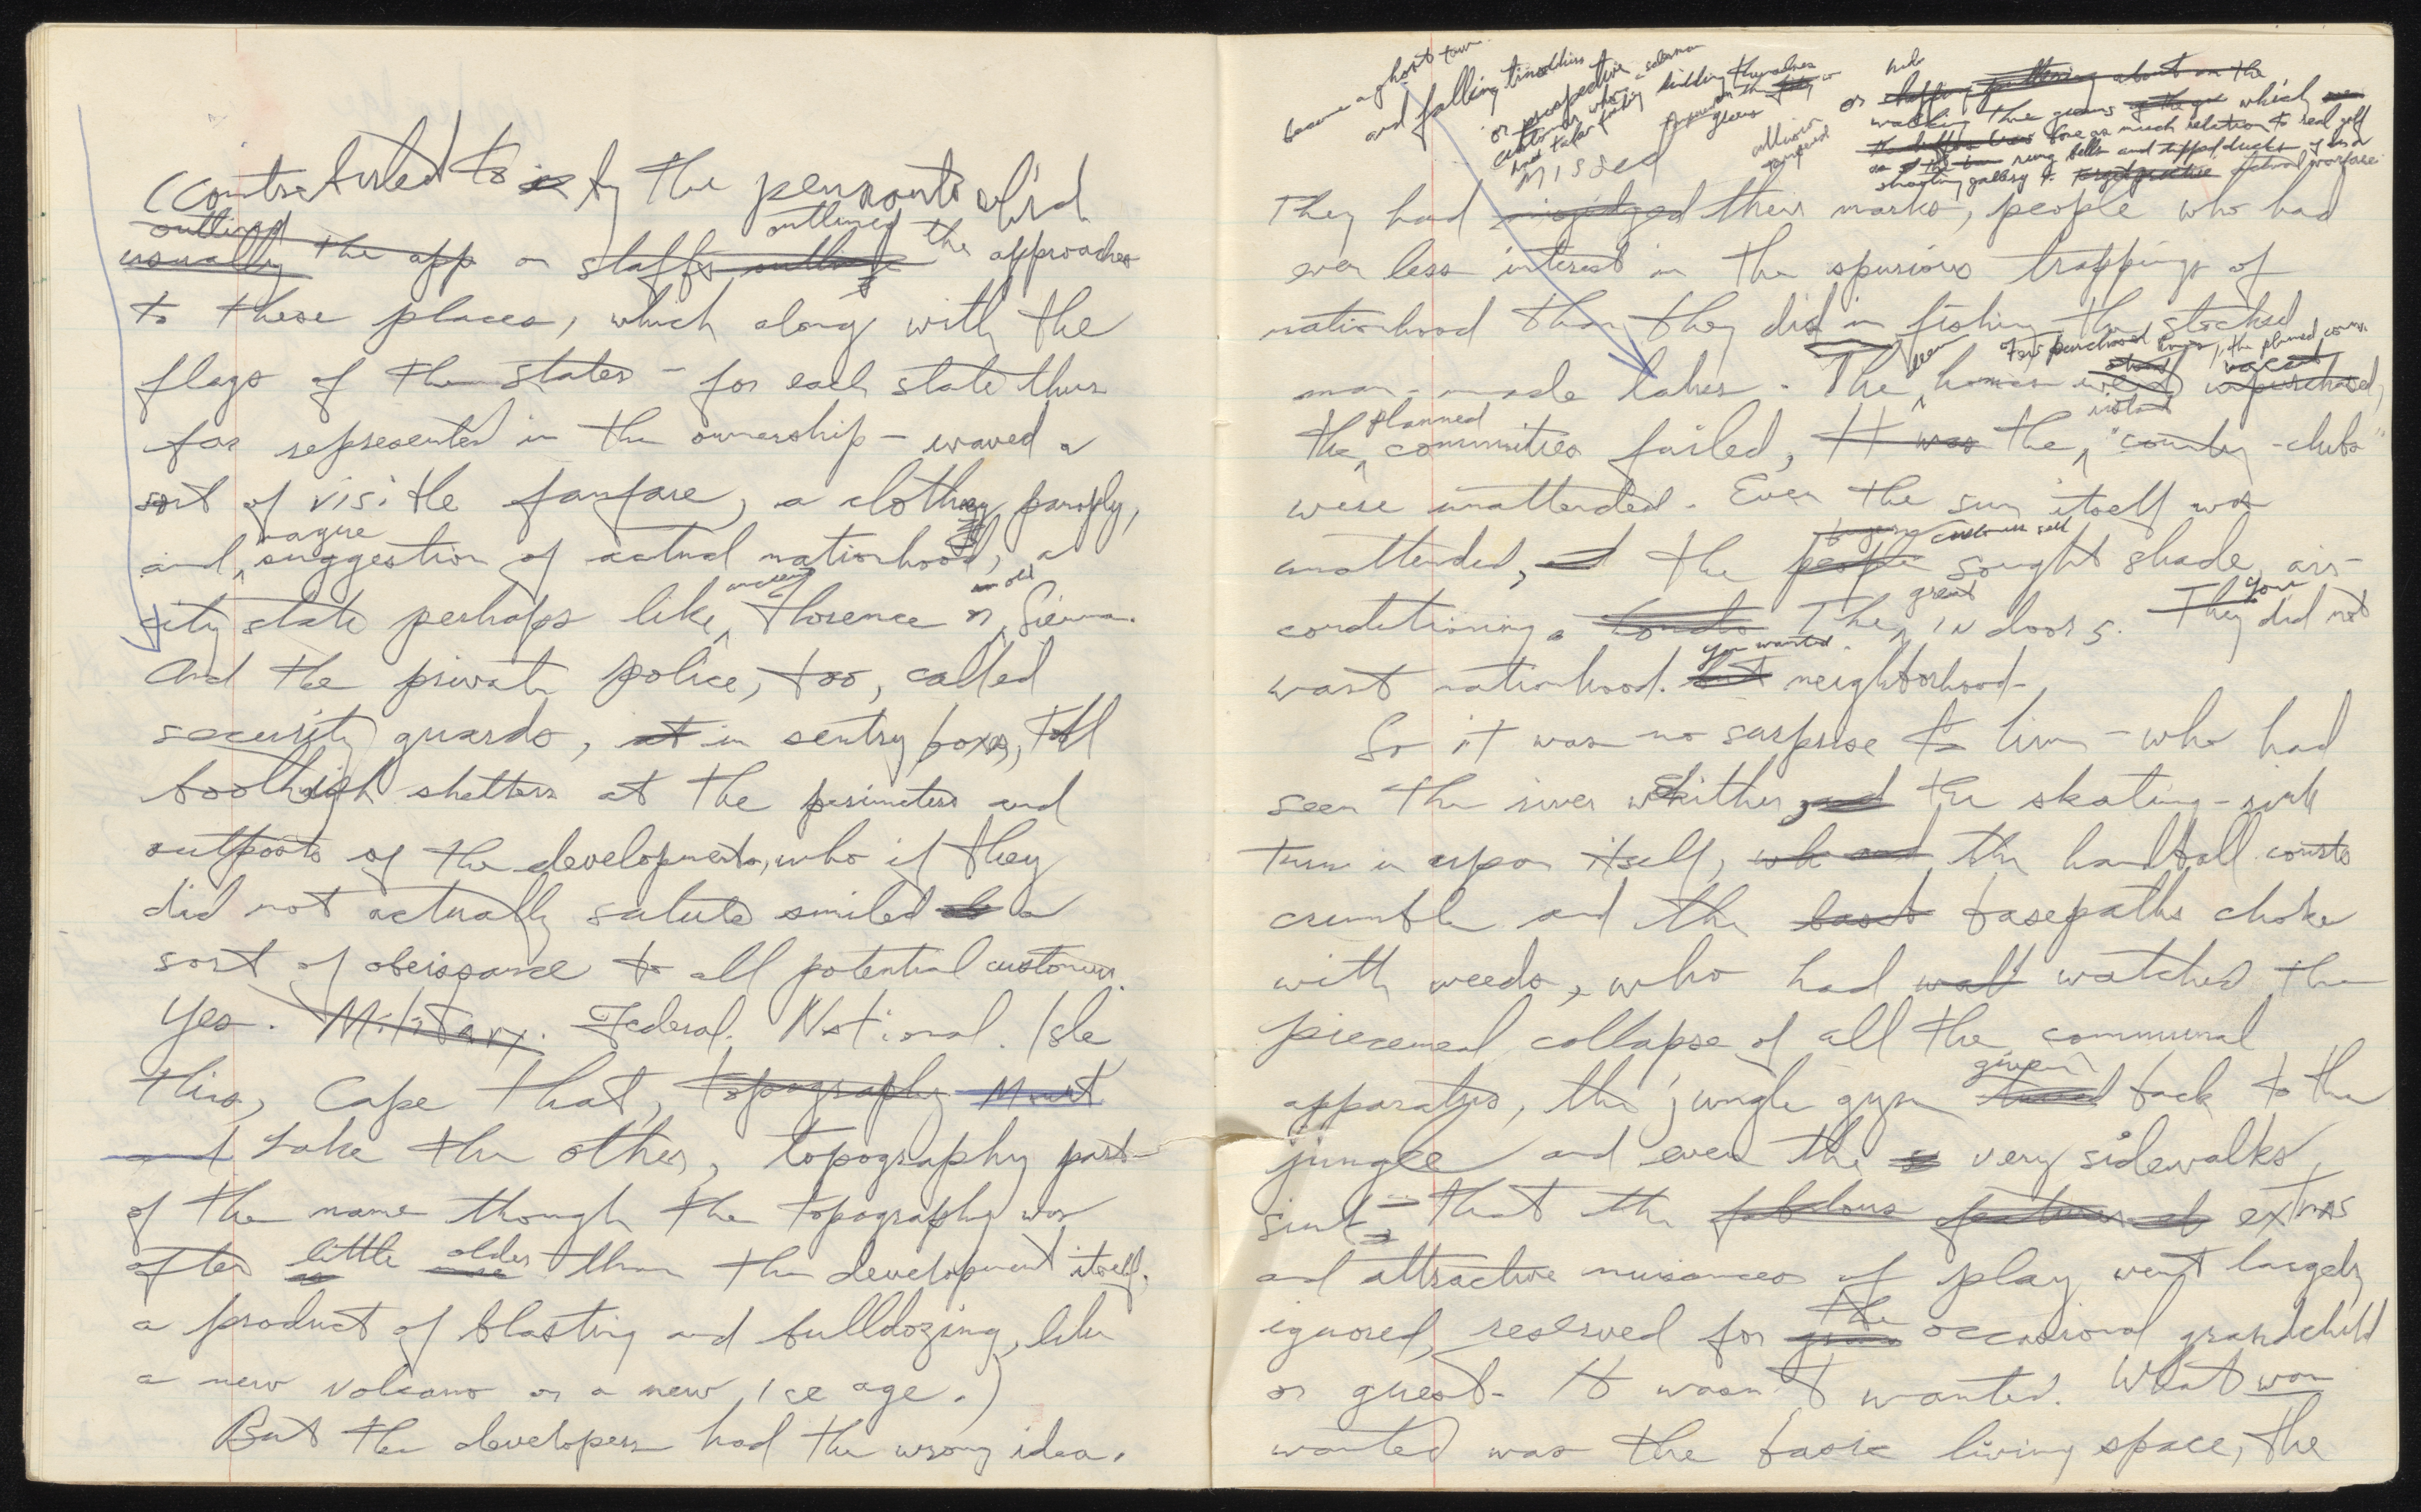 (contributed to by the pennants slid
outlined outlined
usually the app on staffs outling the approaches
to these places, which along with the
flags of the states – for each state thus
far represented in the ownership – waved a
sort of visible fanfare, a clothy panoply,
vague
and suggestion of actual nationhood, a
an old
city state perhaps like Florence or Sienna.
And the private police, too, called
security guards, at in sentry boxes, tall
boothish shelters at the perimeters and
outposts of the developments, who if they
did not actually salute smiled a
sort of obeissance to all potential customers.
Yes. Military. Federal. National. Isle
this, Cape that, topography Mount
and Lake the other, topography part
of the name though the topography was
little older
often as more than the development itself,
a product of blasting and bulldozing, like
a new volcano or a new ice age.)
But the developers had the wrong idea.
became a ghost town
and falling
or prospective
customers who
had taken
kidding themselves
greens
or putting about on the
walking the greens which
bore as much relation to real golf
as rung bells and tipped ducks of a
shooting gallery to target practice actual warfare
missed
They had misjudged their marks, people who had
even less interest in the spurious trappings of
nationhood than they did in fishing the stocked
few purchased homes, the planned comm.
stood vacant
man-made lakes. The homes went unpurchased,
planned
the communities failed, It was the "country-clubs"
were unattended. Even the sun itself was
buyers customers self
unattended, and the people sought shade, air-
great You
conditioning. The indoors. They did not
you wanted
want nationhood. but neighborhood.
So it was no surprise to him – who had
seen the river whither, and the skating-rink
turn in upon itself, wh and the handball courts
crumble and the baset basepaths choke
with weeds, who had wat watched the
piecemeal collapse of all the communal
given
apparatus, the jungle gym back to the
jungle and even the s very sidewalks
sink – that the fabulous features of extras
and attractive nuisances of play went largely
the
ignored, reserved for gran occasional grandchild
or guest. It wasn't wanted. What was
wanted was the basic living space, the